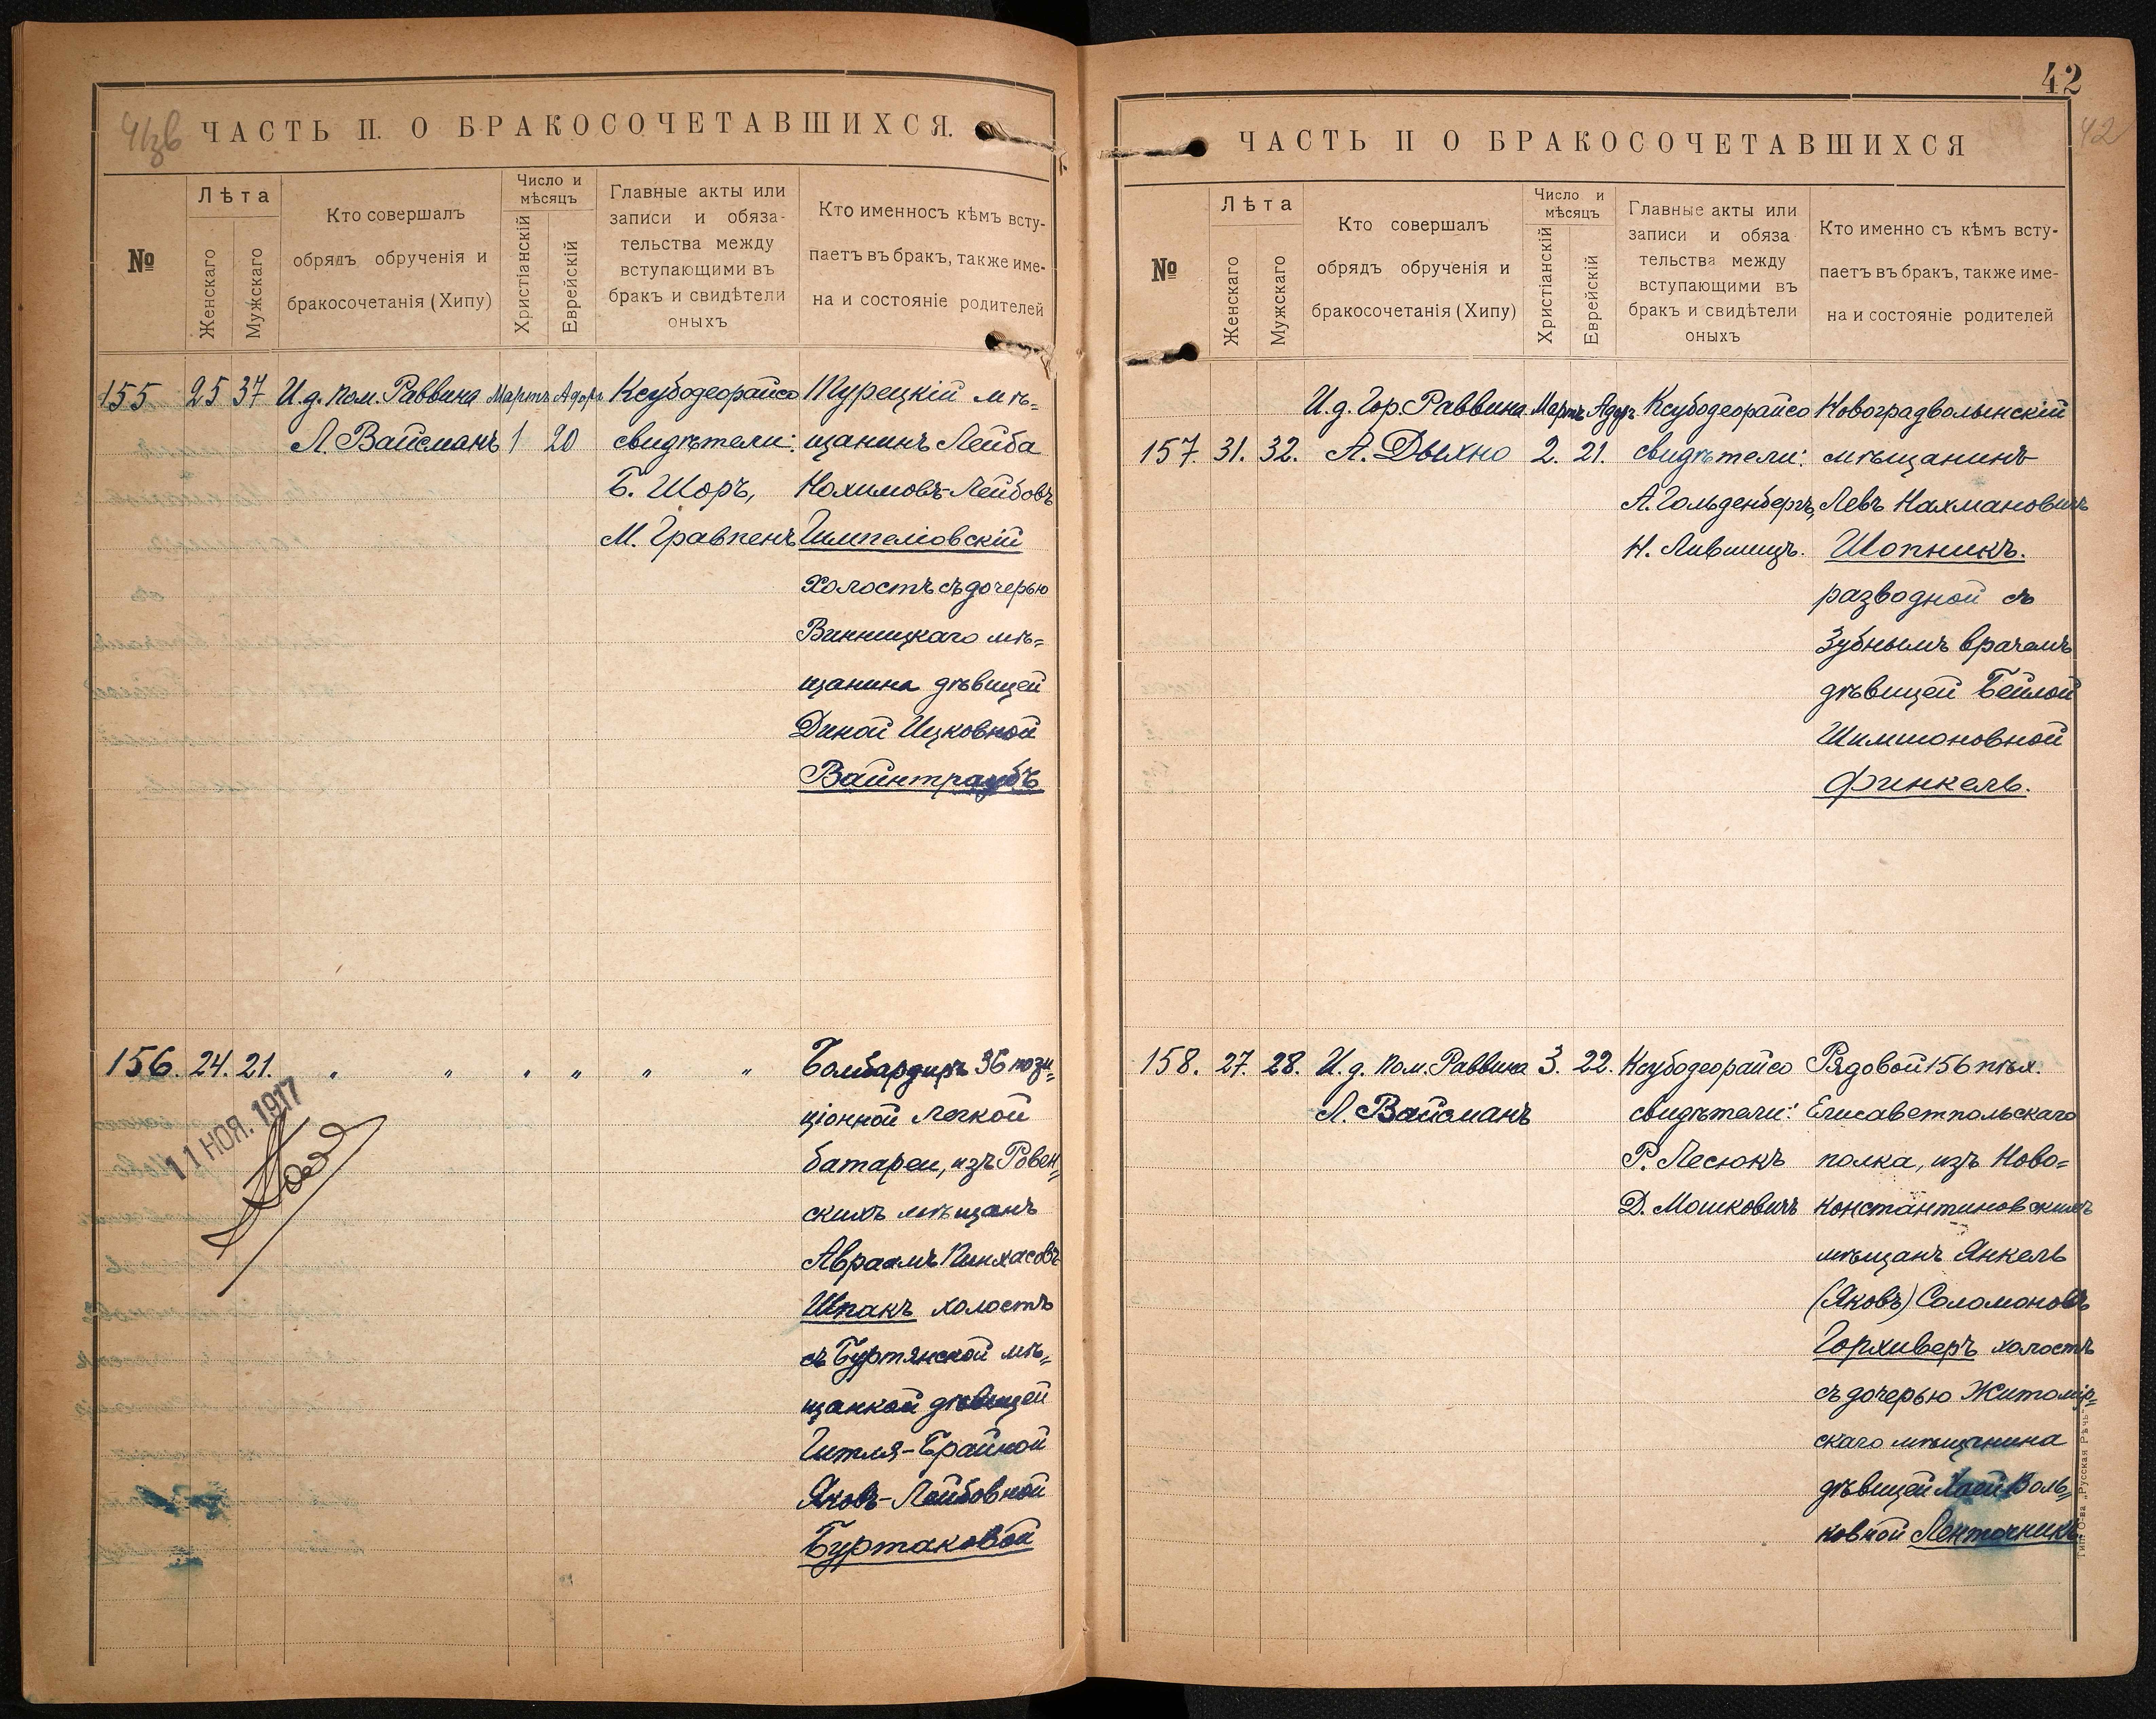 ЧАСТЬ II. О БРАКОСОЧЕТАВШИХСЯ.
№
Лѣта
Женскаго
Мужскаго
Кто совершалъ
обрядъ обрученія и
бракосочетанія (Хипу)
Число и
мѣсяцъ
Христіанскій
Еврейскій
Главные акты или
записи и обяза-
тельства между
вступающими въ
бракъ и свидѣтели
оныхъ
Кто именносъ кѣмъ всту-
паетъ въ бракъ, также име-
на и состояніе родителей
155 25 37 И.д. пом. Раввина Мартъ Адоръ Ксубодеорайсо Турецкій мѣ=
Л. Вайсманъ 1 20 свидѣтели: щанинъ Лейба
Б. Шоръ, Нохимовъ-Лейбовъ
М. Гравпенъ Гимпеліовскій
холостъ съ дочерью
Винницкаго мѣ=
щанина дѣвицей
Диной Ицковной
Вайнтраубъ
156. 24. 21. " " " " " " Бомбардиръ 36 пози=
ціонной легкой
батареи, изъ Ровен=
скихъ мѣщанъ
Авраамъ Пинхасовъ
Шпакъ холостъ
съ Буртянской мѣ=
щанкой дѣвицей
Гитля-Брайной
Яковъ-Лейбовной
Буртаковой
11 НОЯ. 1917
42
42
ЧАСТЬ II О БРАКОСОЧЕТАВШИХСЯ
№
Лѣта
Женскаго
Мужскаго
Кто совершалъ
обрядъ обрученія и
бракосочетанія (Хипу)
Число и
мѣсяцъ
Христіанскій
Еврейскій
Главные акты или
записи и обяза
тельства между
вступающими въ
бракъ и свидѣтели
оныхъ
Кто именно съ кѣмъ всту-
паетъ въ бракъ, также име-
на и состояніе родителей
И.д. Гор. Раввина Мартъ Адоръ Ксубодеорайсо Новоградволынскій
157. 31. 32. А. Дыхно 2. 21. свидѣтели: мѣщанинъ
А. Гольденбергъ, Левъ Нахмановичъ
Н. Лившицъ. Шопникъ.
разводной съ
Зубнымъ врачемъ
дѣвицей Бейлой
Шимшоновной
Финкель.
158. 27. 28. И.д. пом. Раввина 3. 22. Ксубодеорайсо Рядовой 156 пѣх.
Л. Вайсманъ свидѣтели: Елисаветпольскаго
Р. Лесюкъ полка, изъ Ново=
Д. Мошковичъ константиновскихъ
мѣщанъ Янкель
(Яковъ) Соломоновъ
Горхиверъ холостъ
съ дочерью Житомір=
скаго мѣщанина
дѣвицей Хаей Воль=
ковной Ленточникъ
Тип. О-ва „Русская Рѣчь"